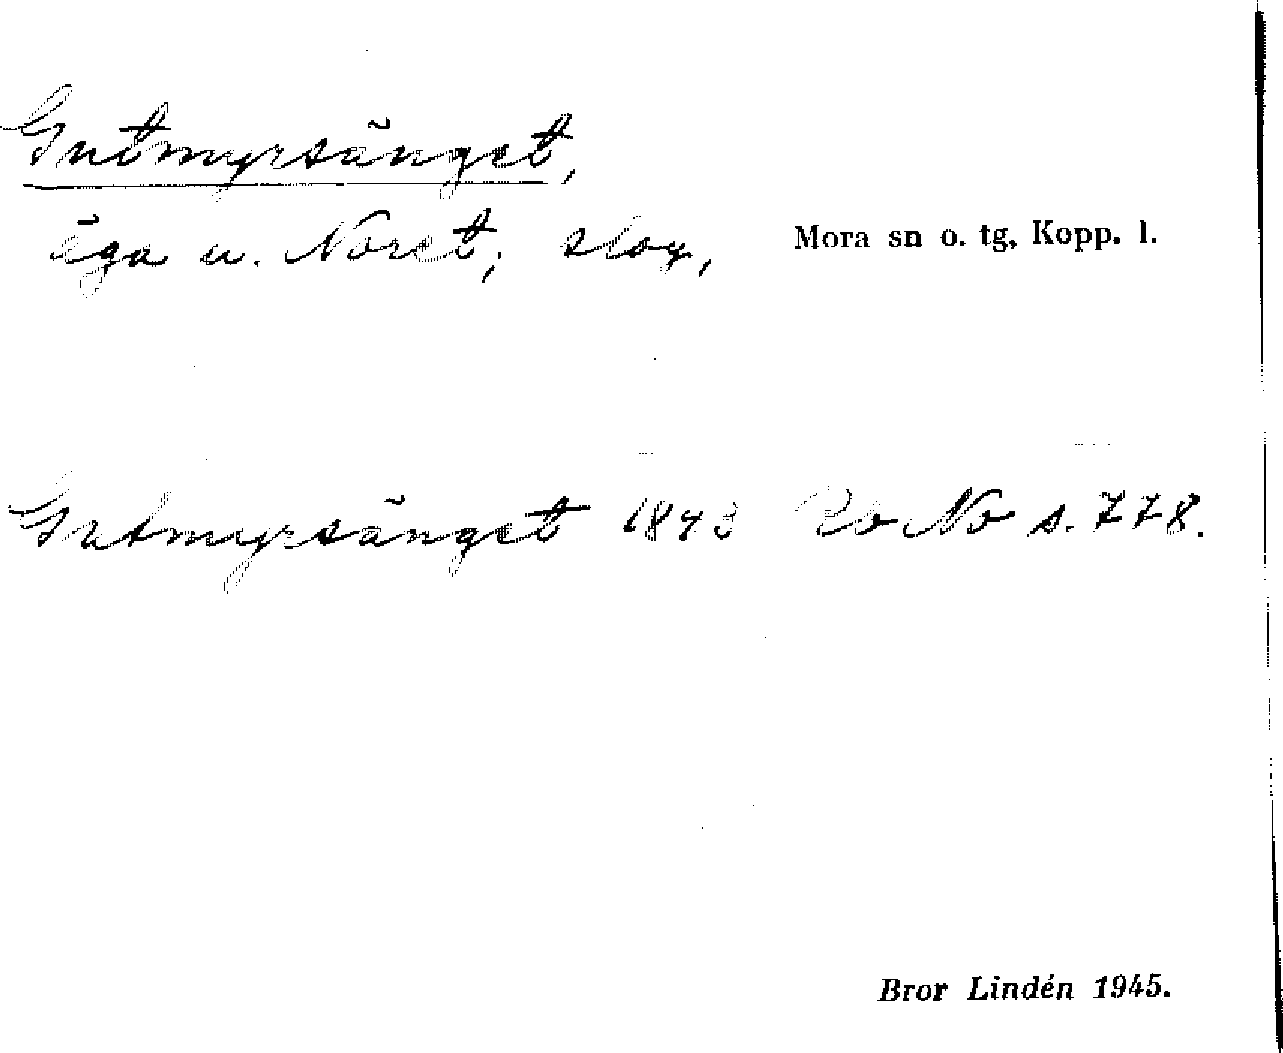 Gutmyrsänget,
äga u. Noret, skog,
Mora sn o. tg, Kopp. l.
Gutmyrsänget 1843 Rb No s. 778.
Bror Lindén 1945.